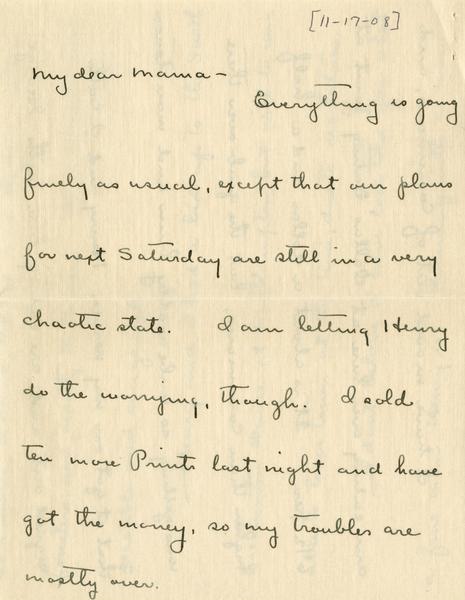 [11-17-08]
My dear Mama—
Everything is going
finely as usual, except that our plans
for next Saturday are still in a very
chaotic state. I am letting Henry
do the worrying, though. I sold
ten more Prints last night and have
got the money, so my troubles are
mostly over.